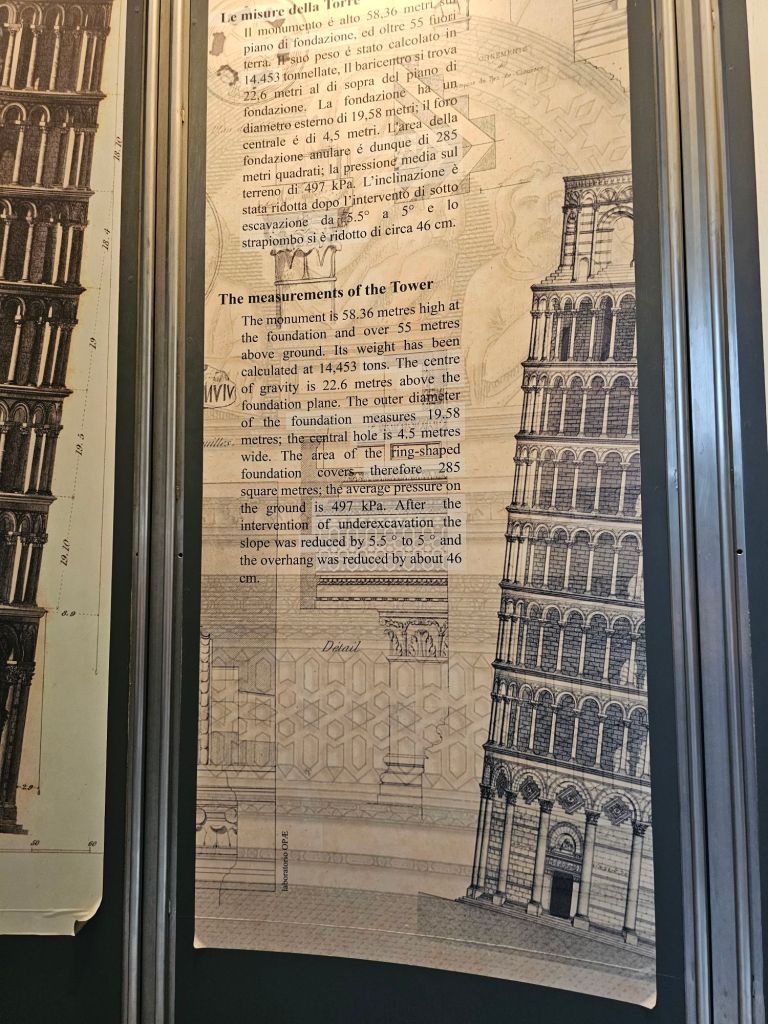 Le misure della Torre
Il monumento é alto 58,36 metri sul
piano di fondazione, ed oltre 55 fuori
terra. Il suo peso é stato calcolato in
14.453 tonnellate, Il baricentro si trova
22,6 metri al di sopra del piano di
fondazione. La fondazione ha un
diametro esterno di 19,58 metri; il foro
centrale é di 4,5 metri. L'area della
fondazione anulare é dunque di 285
metri quadrati; la pressione media sul
terreno di 497 kPa. L'inclinazione è
stata ridotta dopo l'intervento di sotto
escavazione da 5.5° a 5° e lo
strapiombo si è ridotto di circa 46 cm.
The measurements of the Tower
The monument is 58.36 metres high at
the foundation and over 55 metres
above ground. Its weight has been
calculated at 14,453 tons. The centre
of gravity is 22.6 metres above the
foundation plane. The outer diameter
of the foundation measures 19,58
metres; the central hole is 4.5 metres
wide. The area of the ring-shaped
foundation covers therefore 285
square metres; the average pressure on
the ground is 497 kPa. After the
intervention of underexcavation the
slope was reduced by 5.5 ° to 5 ° and
the overhang was reduced by about 46
cm.
Détail
laboratorio OPÆ
ORNEMENTS
18.10
18.4
19
19.5
19.10
8.9
2.9
50 60